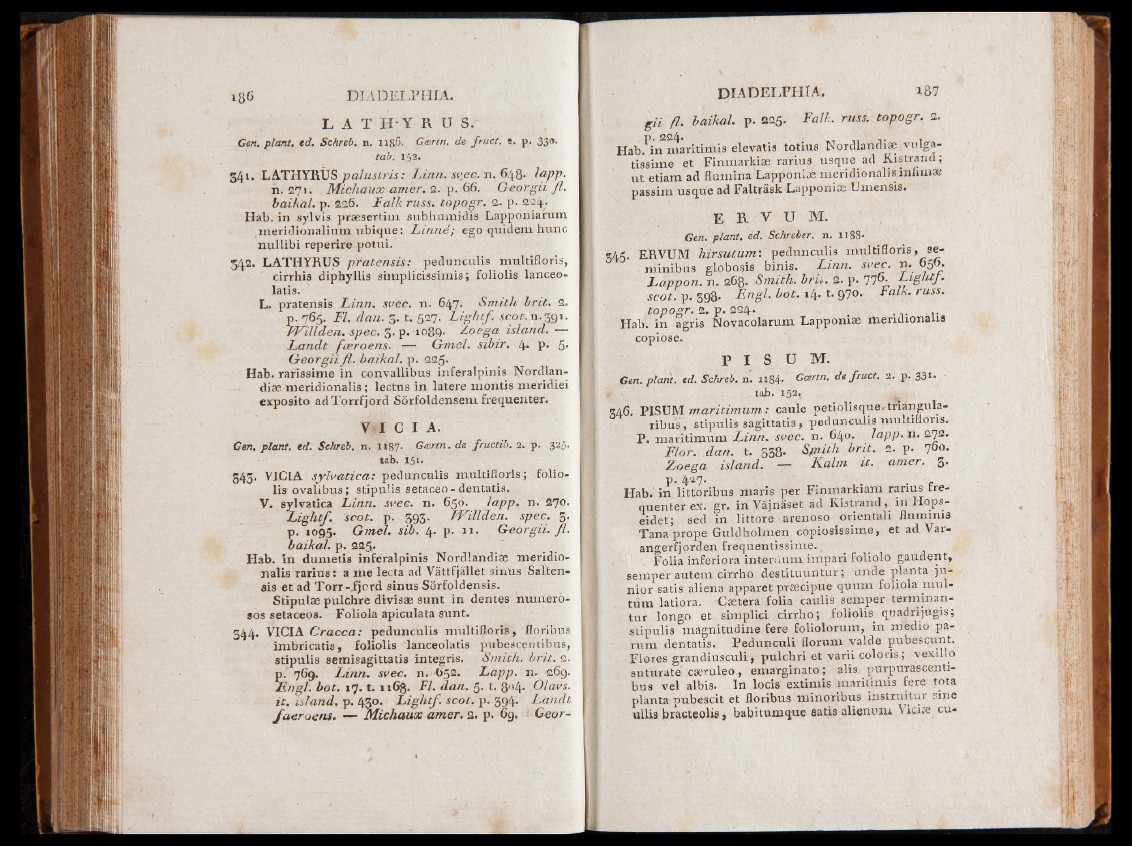 186 DIADELPHIA.
LATHYRUS.
Gen. plant. ed. Schreb. n. 1186. Gærtn. de fruct. 2. p. 330.
tab. 152.
341. LATHYRUS palustris: Linn. svec. n. 648. lapp.
n. 271. Michaux amer. 2. p. 66. Georgii fl.
baikal. p. 226. Falk russ. topogr. 2. p. 224.
Hab. in sylvis præsertim subhumidis Lapponiarum
meridionalium ubique: Linné; ego quidem hunc
nullibi reperire potui.
342. LATHYRUS pratensis: pedunculis multifloris,
cirrhis diphyllis simplicissimis; foliolis lanceo-
latis.
L. pratensis Linn. svec. n. 647. Smith brit. 2.
p. 765. Fl. dan. 3. t. 527. Lightf. scot. n. 391.
Willden. spec. 3. p. 1089. Zoega island. —
Landt færoens. — Gmel. sibir. 4. p. 5.
Georgii fl. baikal. p. 225.
Hab. rarissime in convallibus inferalpinis Nordlan-
diæ meridionalis; lectus in latere montis meridiei
exposito ad Torrfjord Sörfoldensem frequenter.
VICIA.
Gen. plant. ed. Schreb. n. 1187. Gærtn. de fructib. 2. p. 325.
tab. 151.
343. VICIA sylvatica: pedunculis multifloris; folio-
lis ovalibus; stipulis setaceo-dentatis.
V. sylvatica Linn. svec. n. 650. lapp. n. 270.
Lightf. scot. p. 393. Willden. spec. 3.
p. 1095. Gmel. sib. 4. p. 11. Georgii. fl.
baikal. p. 225.
Hab. in dumetis inferalpinis Nordlandiæ meridio-
nalis rarius: a me lecta ad Vättfjället sinus Salten-
sis et ad Torr-fjord sinus Sörfoldensis.
Stipulæ pulchre divisæ sunt in dentes numero-
sos setaceos. Foliola apiculata sunt.
344. VICIA Cracca: pedunculis multifloris, floribus
imbricatis, foliolis lanceolatis pubescentibus,
stipulis semisagittatis integris. Smith. brit. 2.
p. 769. Linn. svec. n. 652. Lapp. n. 269.
Engl. bot. 17. t. 1168. Fl. dan. 5. t. 804. Olavs.
it. island. p. 430. Lightf. scot. p. 394. Landt
faeroens. — Michaux amer. 2. p. 69. Geor-
DIADELPHIA. 187
gii fl. baikal. p. 225. Falk. russ. topogr. 2.
p. 224.
Hab. in maritimis elevatis totius Nordlandiæ vulga-
tissime et Finmarkiæ rarius usque ad Kistrand;
ut etiam ad flumina Lapponiæ meridionalis infimæ
passim usque ad Falträsk Lapponiæ Umensis.
ERVUM.
Gen. plant. ed. Schreber. n. 1188.
345. ERVUM hirsutum: pedunculis multifloris, se-
minibus globosis binis. Linn. svec. n. 656.
Lappon. n. 268. Smith. brit. 2. p. 776. Lightf.
scot. p. 398. Engl. bot. 14. t. 970. Falk. russ.
topogr. 2. p. 224.
Hab. in agris Novacolarum Lapponiæ meridionalis
copiose.
PISUM.
Gen. plant. ed. Schreb. n. 1184. Gærtn. de fruct. 2. p. 331.
tab. 152.
346. PISUM maritimum: caule petiolisque triangula-
ribus, stipulis sagittatis, pedunculis multifloris.
P. maritimum Linn. svec. n. 640. lapp. n. 272.
Flor. dan. t. 338. Smith brit. 2. p. 760.
Zoega island. — Kalm it. amer. 3.
p. 427.
Hab. in littoribus maris per Finmarkiam rarius fre-
quenter ex. gr. in Väjnäset ad Kistrand, in Hops-
eidet; sed in littore arenoso orientali fluminis
Tana prope Guldholmen copiosissime, et ad Var-
angerfjorden frequentissime.
Folia inferiora interdum impari foliolo gaudent,
semper autem cirrho destituuntur; unde planta ju-
nior satis aliena apparet præcipue quum foliola mul-
tum latiora. Cætera folia caulis semper terminan-
tur longo et simplici cirrho; foliolis quadrijugis;
stipulis magnitudine fere foliolorum, in medio pa-
rum dentatis. Pedunculi florum valde pubescunt.
Flores grandiusculi, pulchri et varii coloris; vexillo
saturate cæruleo, emarginato; alis purpurascenti-
bus vel albis. In locis extimis maritimis fere tota
planta pubescit et floribus minoribus instruitur sine
ullis bracteolis, habitumque satis alienum Viciæ cu-